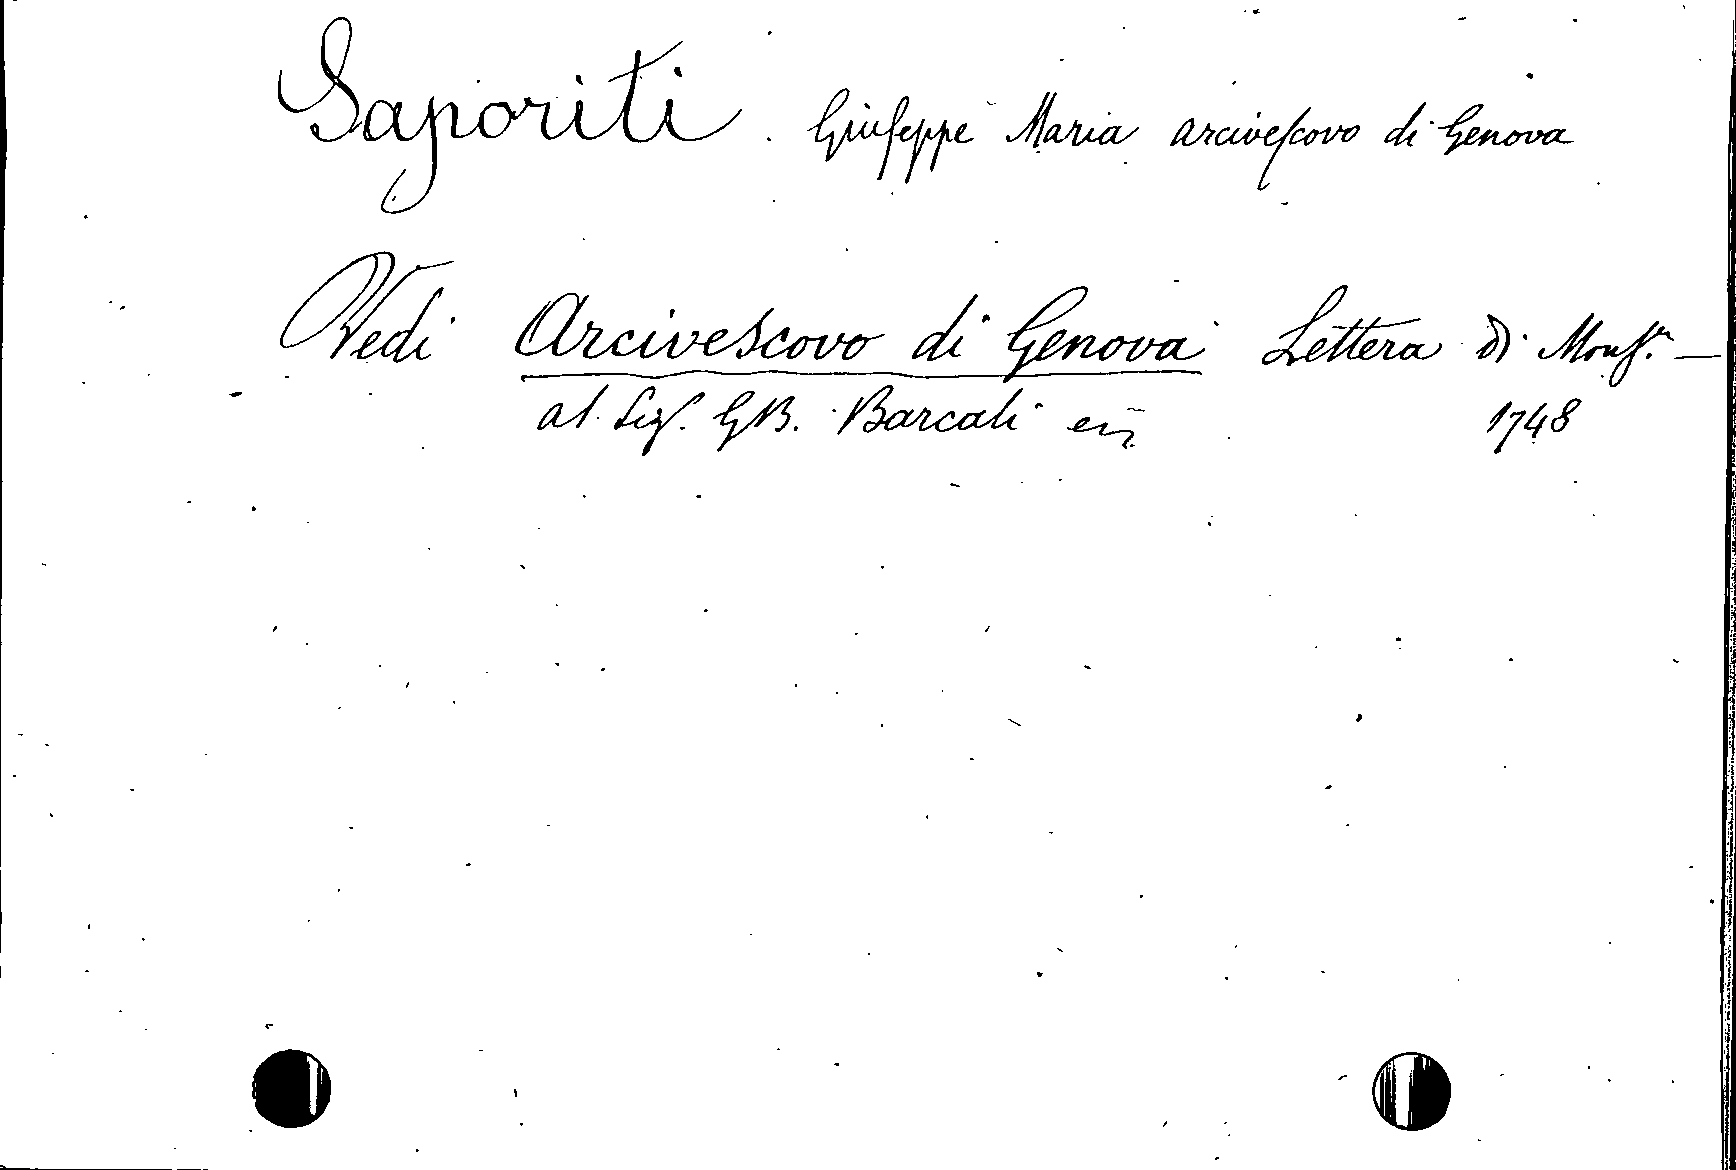 Saporiti. Giuseppe Maria arcivescovo di Genova
Vedi Arcivescovo di Genova Lettera di Mons.r —
al Sig. GB. Barcali 1748